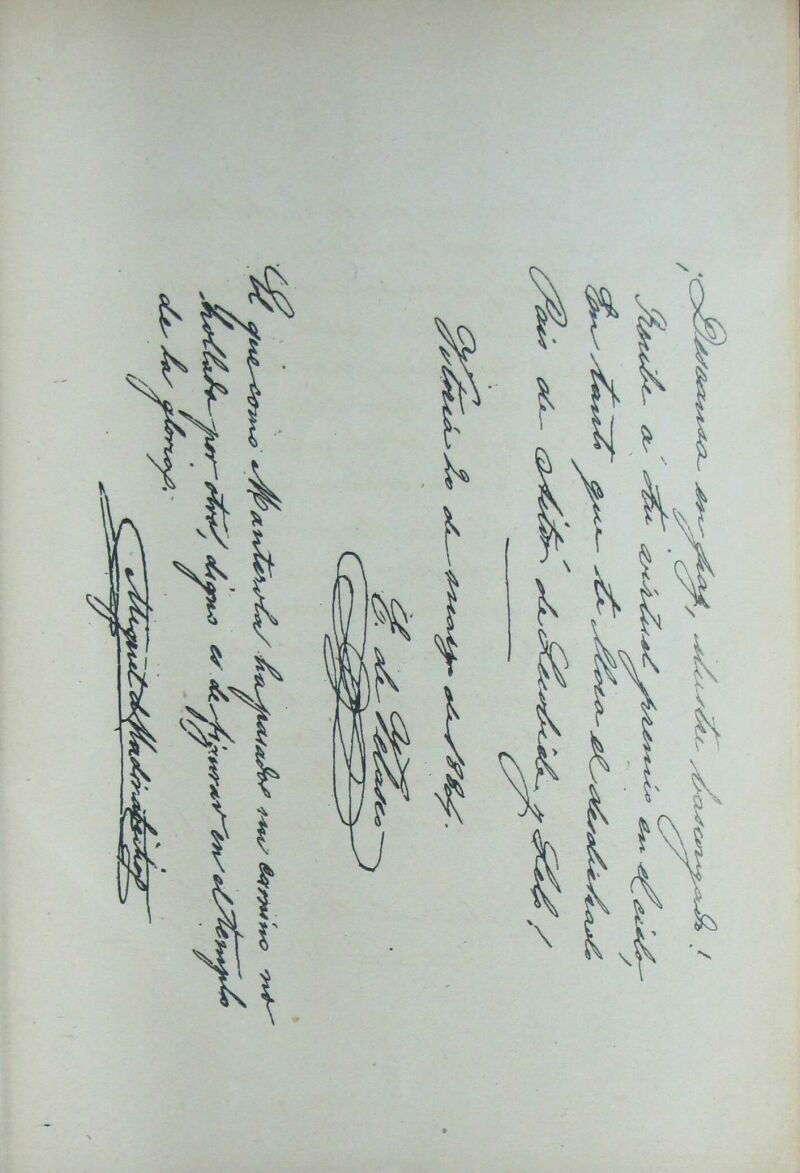 ¡Descansa en paz, ilustre bascongado!
Recibe á tu virtud premio en el cielo,
En tanto que te llora el desdichado
Pais de Aitor de Iturbide y Lelo!
Vitoria 20 de marzo de 1884.
E. de Velasco
El que como Manterola ha pasado un camino no
hollado por otro, digno es de figurar en el templo
de la gloria.
Miguel de Madinabeitia